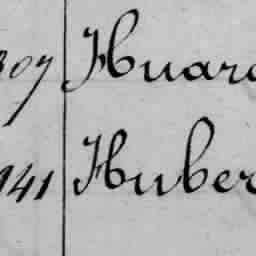 307 Huard
141 Huber